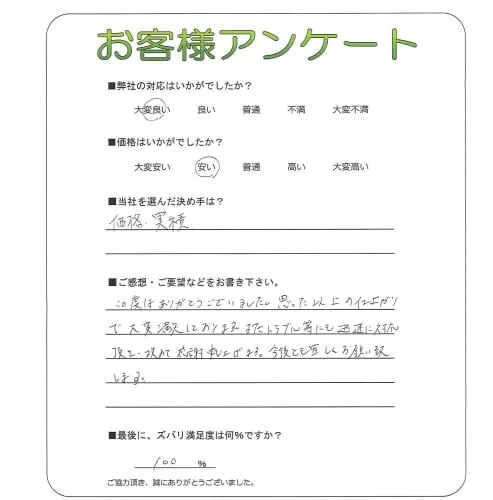 お客様アンケート
■弊社の対応はいかがでしたか？
大変良い 良い 普通 不満 大変不満
■価格はいかがでしたか？
大変安い 安い 普通 高い 大変高い
■当社を選んだ決め手は？
価格・実績
■ご感想・ご要望などをお書き下さい。
この度はありがとうございました。思った以上の仕上がり
で大変満足しております。またトラブル等にも迅速に対応
頂き、改めて感謝申し上げます。今後とも宜しくお願い致
します。
■最後に、ズバリ満足度は何％ですか？
100 ％
ご協力頂き、誠にありがとうございました。